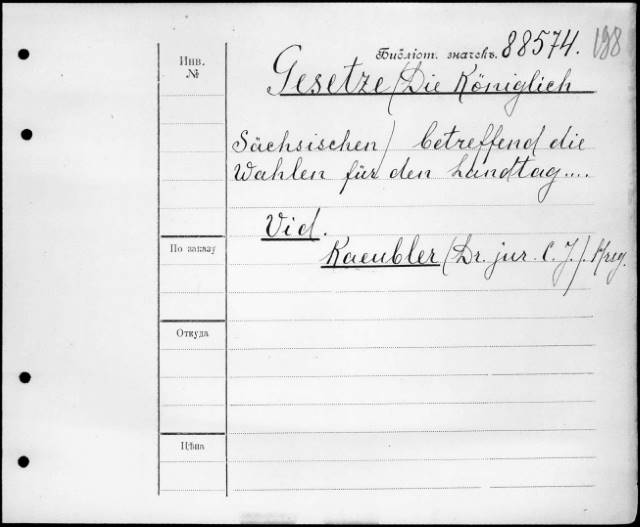 Библіот. значекъ. 88574. 188
Инв. №
Gesetze (Die Königlich
Sächsischen) betreffend die
Wahlen für den Landtag....
Vid.
По заказу
Kaeubler (Dr. jur. C. J.). Hrsg.
Откуда
Цѣна